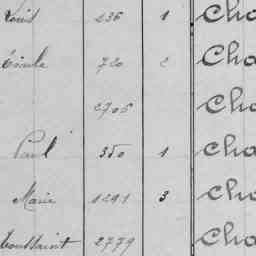 Louis 236 1 Cha
Emile 720 2 Cha
2706 Cha
Paul 350 1 Cha
Marie 1291 3 Cha
Toussaint 2779 Cha